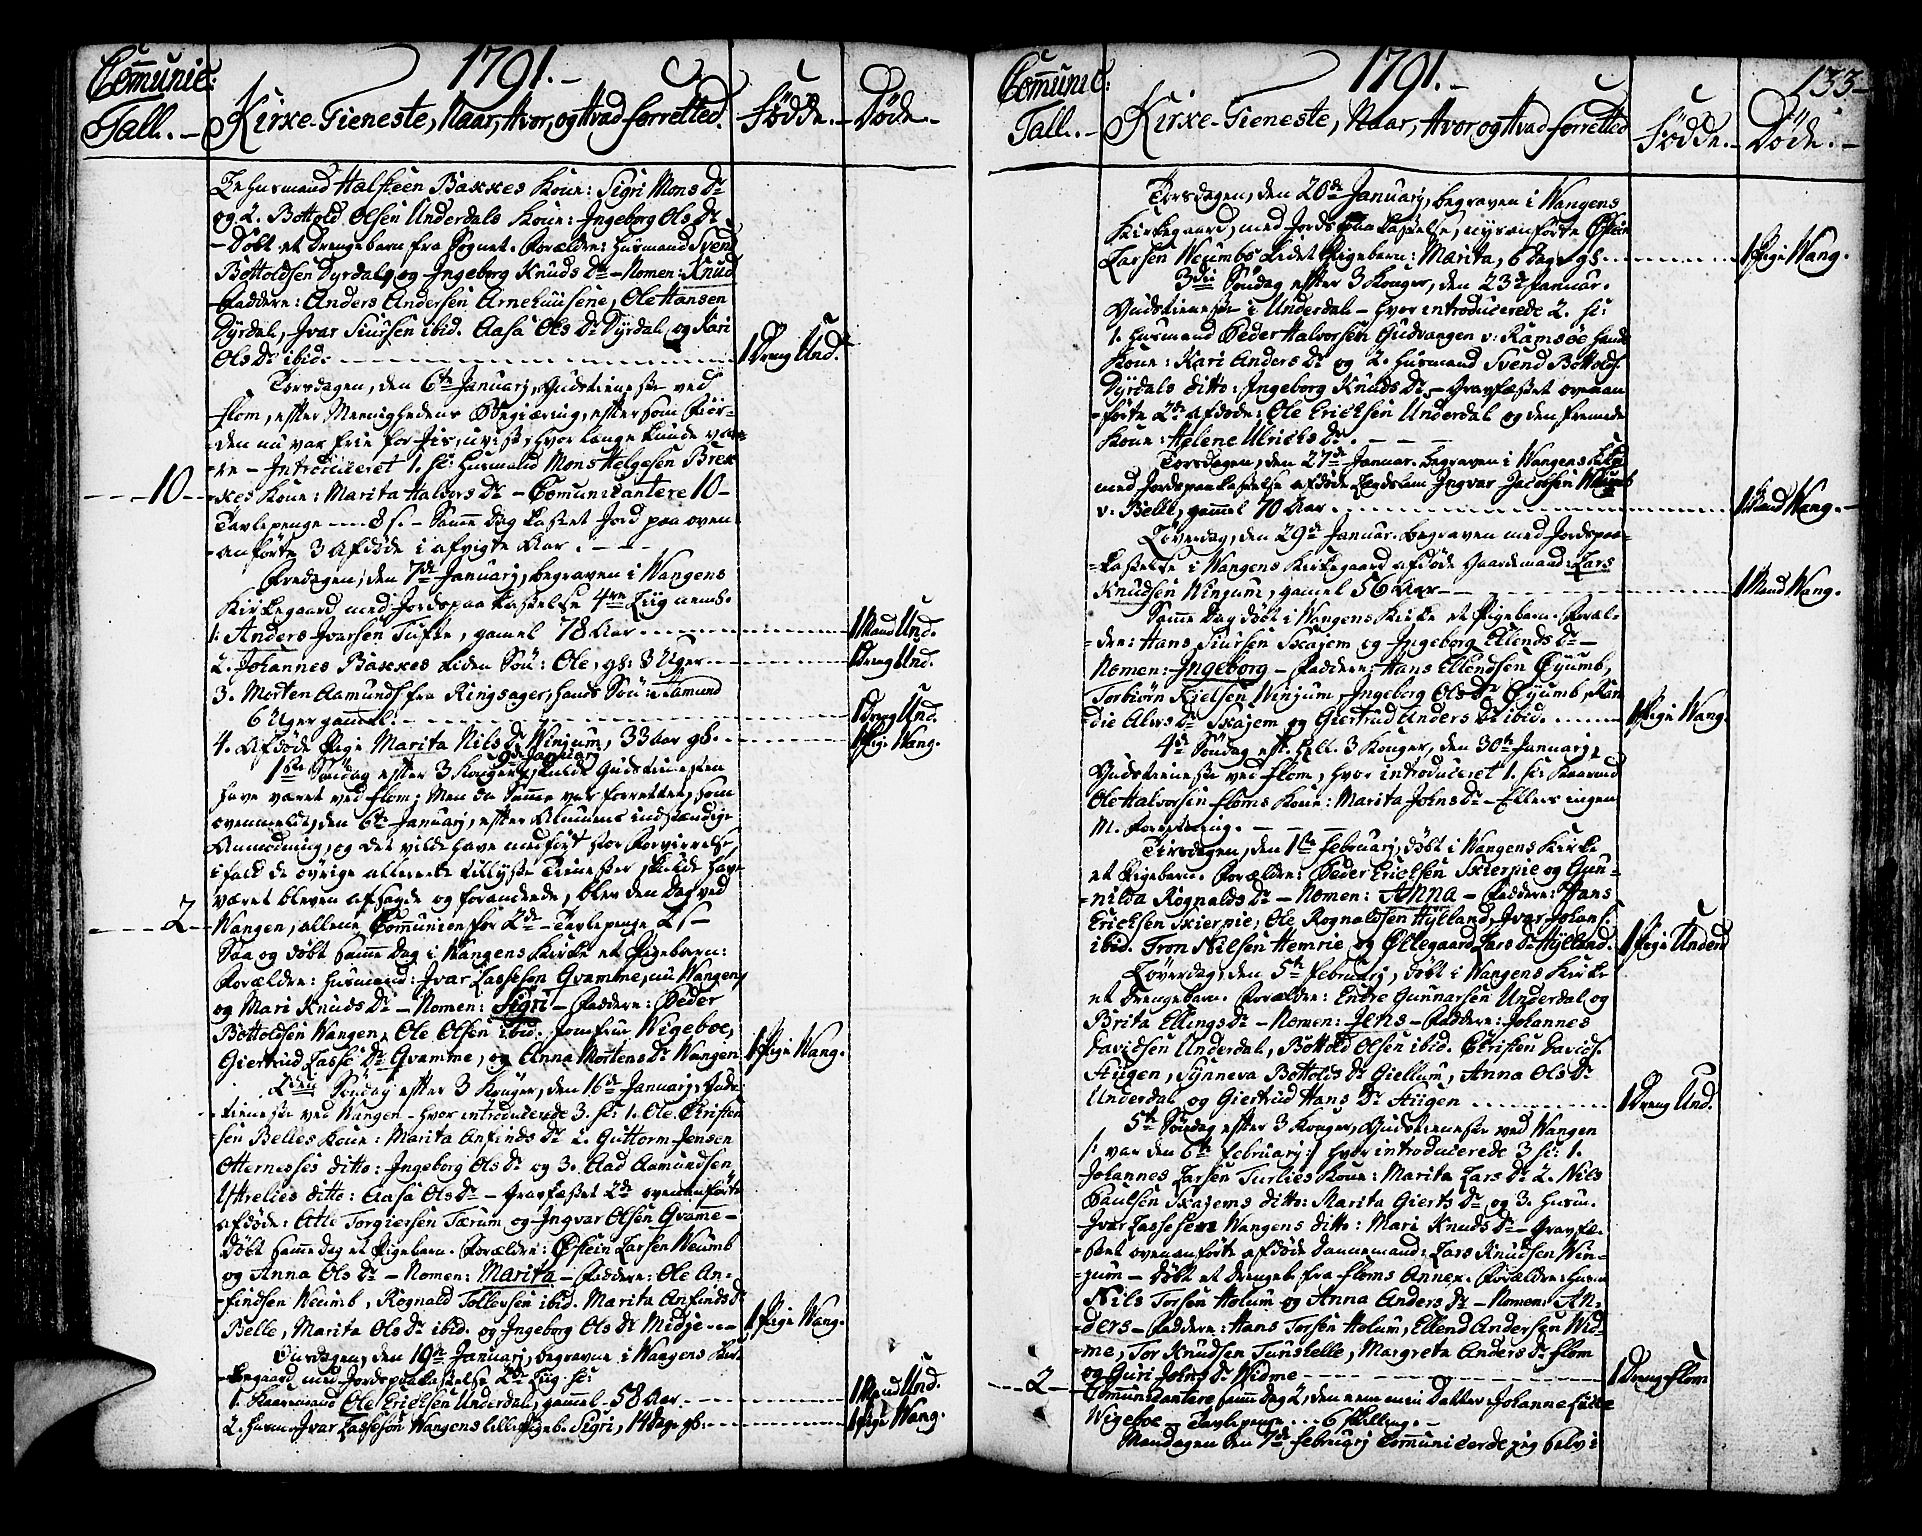 Com̄unic:
Tall.-
1791.-
Kirke-Tieneste, Naar, Hvor, og Hvad forretted.
Födde.-
Döde.-
Husmand Halsteen Bakkes Kone: Sigri Mons Dr
og 2. Bottold Olsen Underdals Kone: Ingeborg Ols Dr
- Döbt et Drengebarn fra Sognet. Forældre: Husmand Svend
Bottoldsen Dyrdal, og Ingeborg Knuds Dr - Nomen: Knud
Faddere: Anders Andersen Arnehuusene, Ole Hansen
Dyrdal, Ivar Siursen ibid. Aasa Ols Dr Dyrdal og Kari
Ols Dr ibid. 1 Dreng Und.
Torsdagen, den 6te Januarj, Gudstieneste ved
Flom, efter Meenighedens Begiæring, eftersom Fior-
den nu var frie for Iis, uvist, hvor længe kunde være
- Introduceret 1. sc: Husmand Mons Helgesen Brek-
10 kes Kone: Marita Halvors Dr - Com̄unicantere 10 -
Tavlepenge - 8 s. - Sam̄e Dag kastet Jord paa oven-
anförte 3 Afdöde i afvigte Aar.
Fredagen, den 7de Januarj, begraven i Wangens
Kirkegaard med Jordspaakastelse 4re Liig neml.
1. Anders Iversen Tufte, gamel 78 Aar 1 Mand Und.
2. Johannes Bakkes liden Sön: Ole, gl: 3 Uger 1 Dreng Und.
3. Morten Aamunds. fra Ringsager, hans Sön: Aamund
6 Uger gamel. 1 Dreng Und.
4. Afdöde Pige Marita Nils Dr Winjum, 33 Aar gl. 1 Pige Wang.
9de Januarj
1ste Söndag efter 3 Konger skulde Gudstienesten
have været ved Flom; Men da Sam̄e var forrettet, som
ovenmeldt, den 6te Januarj, efter Almuens indstændige
Anmodning, og det vilde have medfört stor Forvirrelse,
ifald de övrige allerede tillyste Tienester skulde hav
været bleven afsagde og forandrede, blev den Dag ved
2 Wangen, allene Com̄union for 2de - Tavlepenge 2 s -
Saa og döbt sam̄e Dag i Wangens Kirke et Pigebarn:
Forældre: Husmand: Ivar Lassesen Gvamme, nu Wangen,
og Mari Knuds Dr - Nomen: Sigri - Faddere: Peder
Bottoldsen Wangen, Ole Olsen ibid. Jomfrue Wigeboe,
Giertrud Lasse Dr Gvamme, og Anna Mortens Dr Wangen 1 Pige Wang.
2den Söndag efter 3 Konger, den 16de Januarj, Guds-
tieneste ved Wangen - hvor introducerede 3. sc: 1. Ole Christen
sen Belles Kone: Marita Anfinds Dr 2. Guttorm Jensen
Otternesses ditto: Ingeborg Ols Dr og 3. Aad Aamundsen
Ytrelies ditto: Aasa Ols Dr - Gravfæstet 2de ovenanförte
Afdöde: Atle Torgiersen Tærum og Ingvar Olsen Gvame -
Döbt sam̄e Dag et Pigebarn. Forældre: Östein Larsen Weumb
og Anna Ols Dr - Nomen: Marita - Faddere: Ole An-
findsen Weumb, Rognald Tollevsen ibid. Marita Anfinds Dr
Belle, Marita Ols Dr ibid. og Ingeborg Ols Dr Midje 1 Pige Wang.
Onsdagen, den 19de Januarj, begravne i Wangens Kir-
kegaard med Jordspaakastelse 2de Liig sc:
1. Kaaremand Ole Erichsen Underdal, gammel 58 Aar 1 Mand Und.
2. Husm. Ivar Lassesön Wangens lille Pigeb. Sigri, 14 Dage gl. 1 Pige Wang.
133-
Com̄unic:
Tall.-
1791.-
Kirke-Tieneste, Naar, Hvor og Hvad forretted
Födde.-
Döde.-
Torsdagen, den 20de Januarj, begraven i Wangens
Kirkegaard, med Jordspaakastelse, nysanförte Östein
Larsen Weumbs lidet Pigebarn: Marita, 6 Dage gl. 1 Pige Wang.
3die Söndag efter 3 Konger, den 23de Januar.
Gudstieneste i Underdal - hvor introducerede 2. sc:
1. Husmand Peder Halvorsen Gudvangen v: Ramsöe hans
Kone: Kari Anders Dr og 2. Husmand Svend Bottolds.
Dyrdals ditto: Ingeborg Knuds Dr - Gravfæstet ovenan-
förte 2de Afdöde: Ole Erichsen Underdal og den fremmede
Kone: Helene Ulrichs Dr.
Torsdagen, den 27de Januar. begraven i Wangens Kirkeg.
med Jordspaakastelse afdöde Ingvar Jacobsen Weumb
v: Belle, gammel 70 Aar. 1 Mand Wang.
Löverdag, den 29de Januar. begraven med Jordspaa-
kastelse i Wangens Kirkegaard afdöde Gaardemand: Lars
Knudsen Winjum, gamel 56 Aar 1 Mand Wang.
Sam̄e Dag döbt i Wangens Kirke et Pigebarn. Foræl-
dre: Hans Siursen Skajem og Ingeborg Ellends Dr -
Nomen: Ingeborg - Faddere: Hans Ellendsen Öyumb,
Torbiörn Kielsen Winjum, Ingeborg Ols Dr Öyumb, Ran-
die Alers Dr Skajem og Giertrud Anders Dr ibid. 1 Pige Wang.
4de Söndag eft. Hell. 3 Konger, den 30te Januarj,
Gudstieneste ved Flom, hvor introduceret 1. sc: Kaarmd
Ole Halvorsen Floms Kone: Marita Johns Dr - Ellers ingen
M. Forretning.
Tirsdagen, den 1ste Februarj, döbt i Wangens Kirke
et Pigebarn. Forældre: Peder Erichsen Skierpie og Gun-
nilda Rognalds Dr - Nomen: Anna - Faddere: Hans
Erichsen Skierpie, Ole Rognaldsen Hylland, Ivar Johans.
ibid. Tron Nilsen Hemrie, og Öllegaard Lars Dr Hylland. 1 Pige Underd
Löverdag, den 5te Februarj, döbt i Wangens Kirke
et Drengebarn. Forældre: Endre Gunnarsen Underdal og
Brita Ellings Dr - Nomen: Jens - Faddere: Johannes
Davidsen Underdal, Bottold Olsen ibid. Christen Davids.
Stigen, Synneva Bottolds Dr Giellum, Anna Ols Dr
Underdal og Giertrud Hans Dr Stigen 1 Dreng Und.
5te Söndag efter 3 Konger, Gudstieneste ved Wangen
/: var den 6te Februarj :/ hvor introducerede 3 sc: 1.
Johannes Larsen Turlies Kone: Marita Lars Dr 2. Nils
Paulsen Skajems ditto: Marita Gierts Dr og 3. Husm.
Ivar Lassesens Wangens ditto: Mari Knuds Dr - Gravfæ-
stet ovenanförte afdöde Dannemand: Lars Knudsen Win-
jum - Döbt et Drengeb. fra Floms Annex. Forældre: Husm
Nils Torsen Holum og Anna Anders Dr - Nomen: An-
ders - Faddere: Hans Torsen Holum, Ellend Andersen Wid-
me, Tor Knudsen Tunshelle, Margreta Anders Dr Flom
og Guri Johns Dr Widme 1 Dreng Flom
2 Com̄unicantere sam̄e Dag 2, den eene min Datter Johanne
Wigeboe - Tavlepenge - 6 skilling. -
Mandagen den 7de Februarj Com̄unicerede jeg selv i